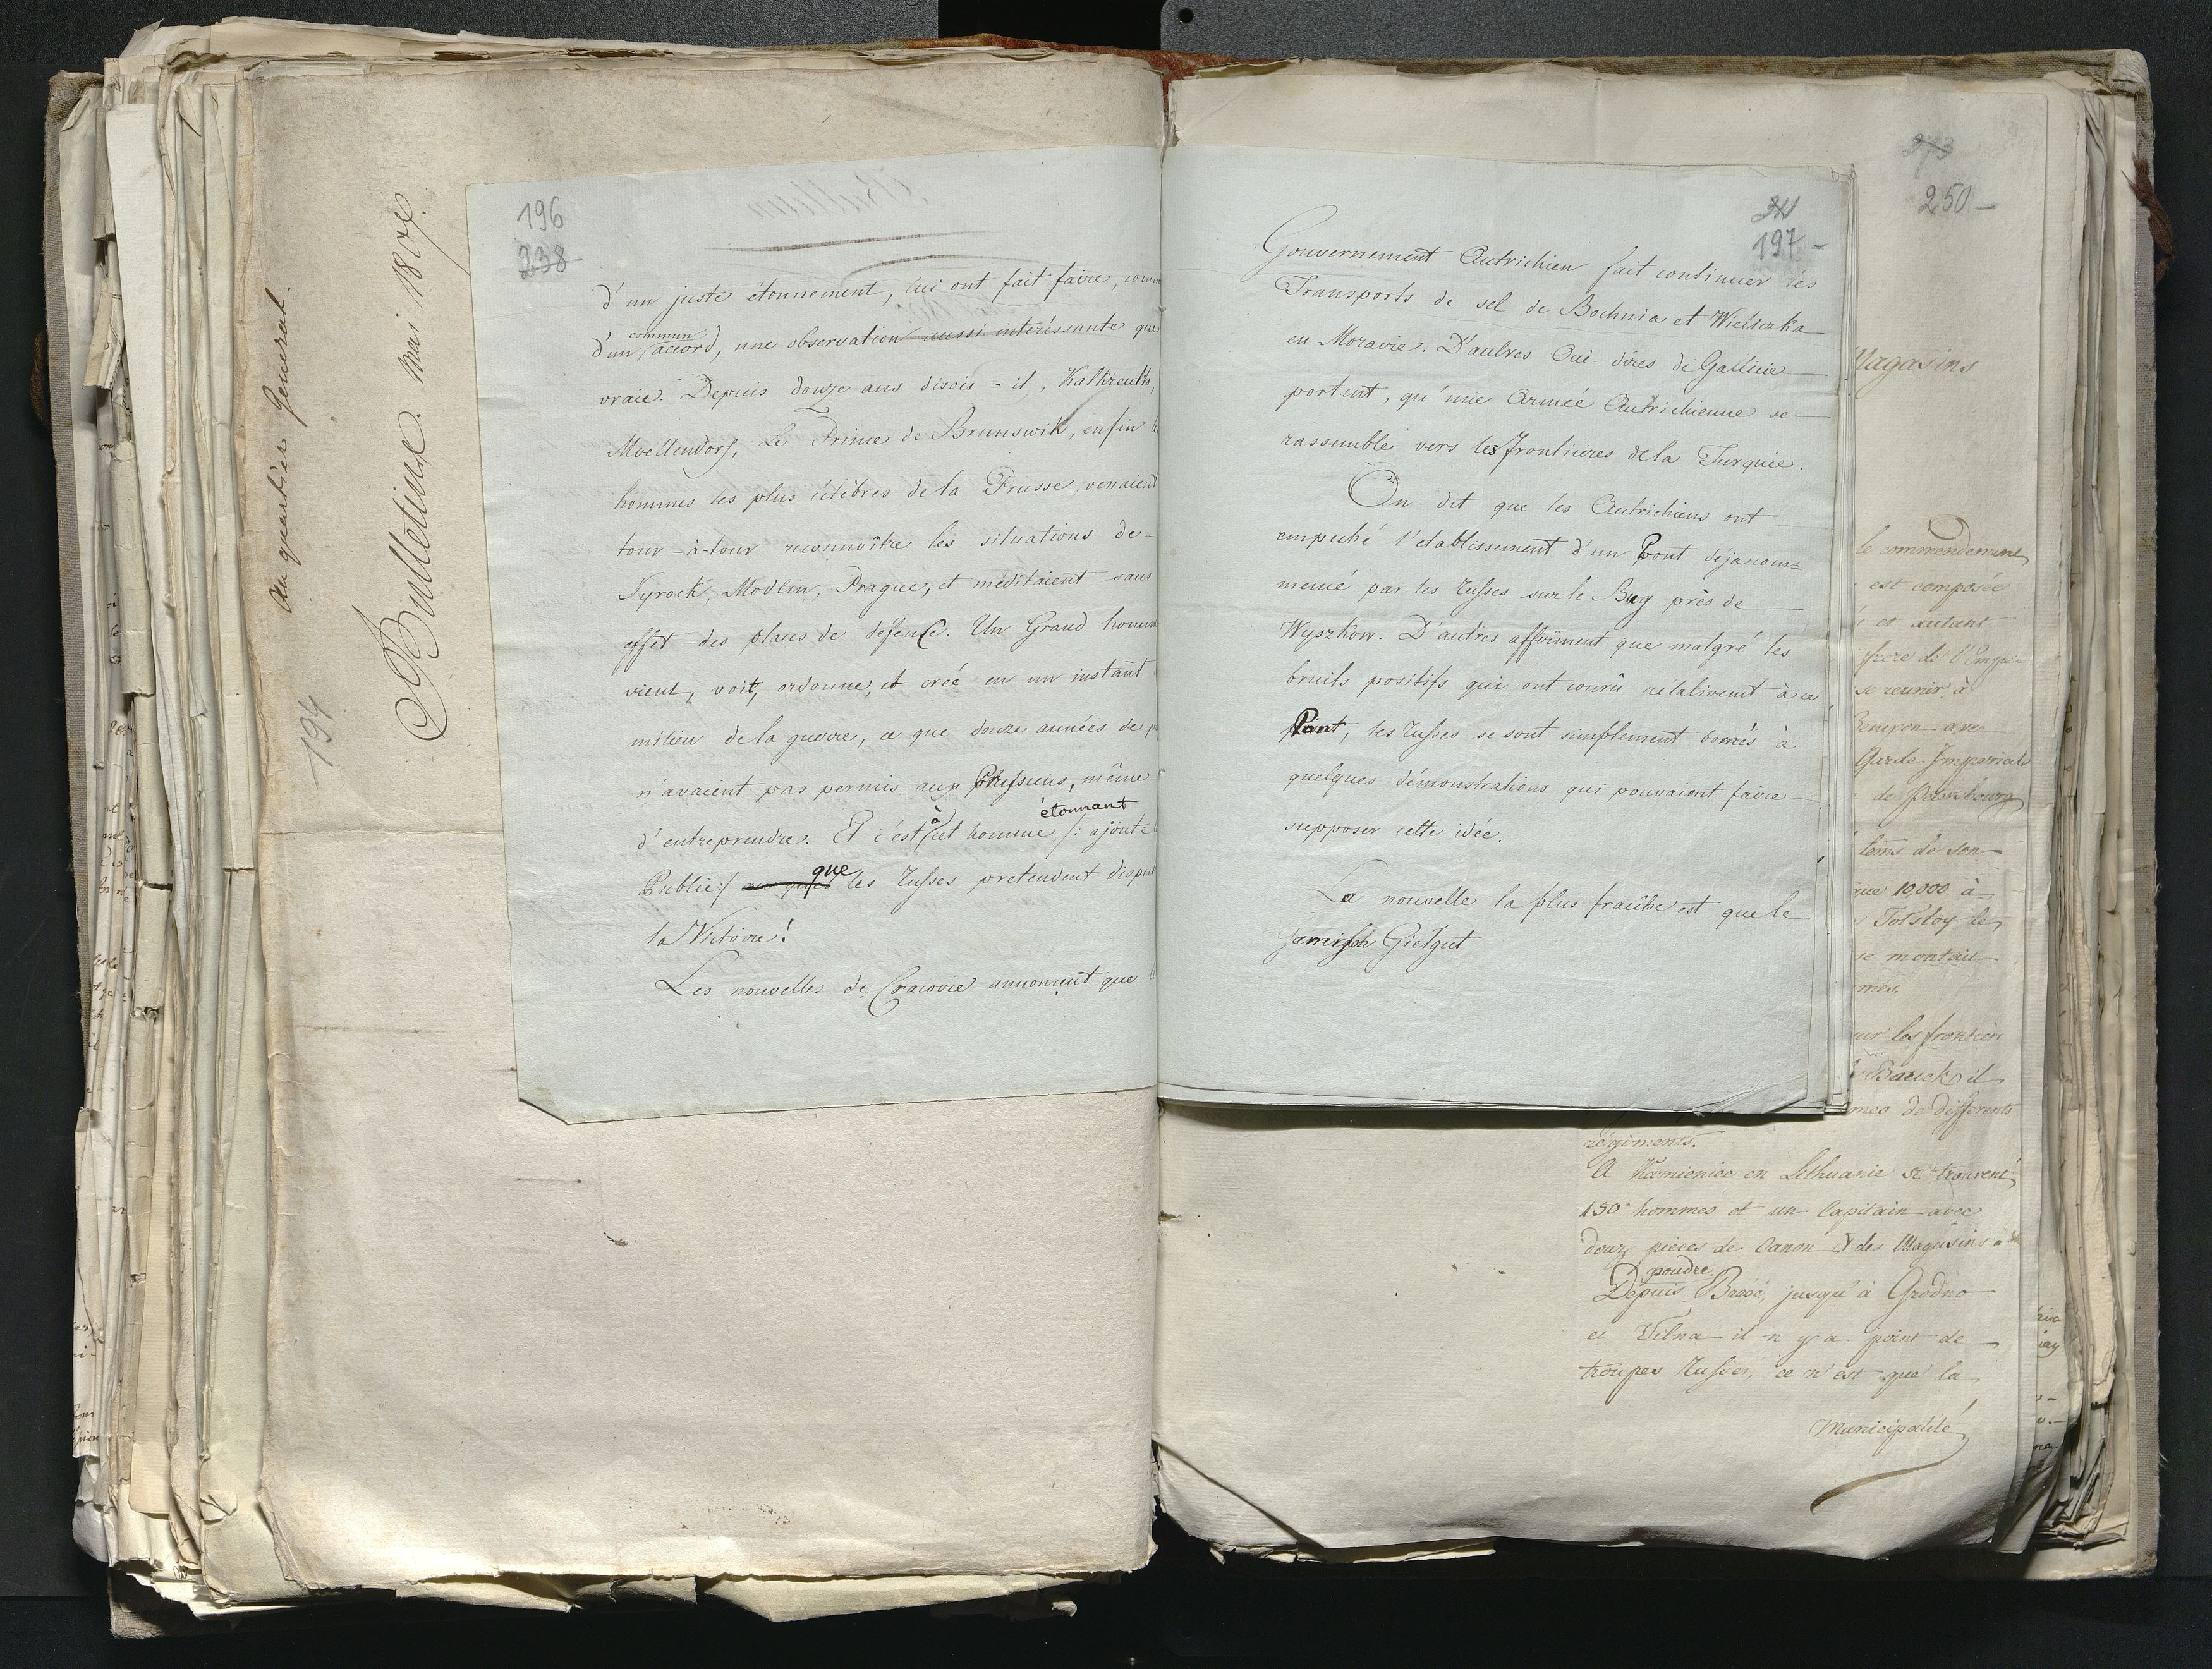 Au quartier General.
Bulletine. Mai 1807.
194
196
238
d'un juste étonnement, lui ont fait faire, comm
d'un commun accord, une observation aussi interéssante que
vraie. Depuis douze ans disois-il, Kalkreuth,
Moellendorf, Le Prince de Brunswik, enfin
hommes les plus célèbres de la Prusse, venaient
tour-à-tour reconnoître les situations de
Syrock, Modlin, Prague, et méditaient sans
effet des plans de défense. Un Grand homme
vient, voit, ordonne, et créé en un instant
milieu de la guerre, ce que douze années de
n'avaient pas permis aux Prussiens, même
d'entreprendre. Et c'est à cet homme étonnant /: ajoute
Public :/ que les Russes pretendent disput
la Victoire!
Les nouvelles de Cracovie annoncent que
197-
Gouvernement Autrichien fait continuer les
Transports de sel de Bochnia et Wieliczka
en Moravie. D'autres Oui-dires de Gallicie
portent, qu'une Armée Autrichienne se
rassemble vers les frontieres de la Turquie.
On dit que les Autrichiens ont
empeché l'etablissement d'un Pont dejà com=
mencé par les Russes sur le Bug près de
Wyszkow. D'autres affirment que malgré les
bruits positifs qui ont couru rélativement à ce
Pont, les Russes se sont simplement bornés à
quelques démonstrations qui pouvaient faire
supposer cette idée.
La nouvelle la plus fraiche est que le
Gielgut
373
250-
Magasins
le commendement
est composée
et autant
frere de l'Empe-
se reunir à
Garde Imperiale
de Petersbourg
tems de son
que 10,000 à
Tolstoy le
se montais
mes.
sur les frontier
il
mes de differents
régiments.
A Kamieniec en Lithuanie se trouvent
150 hommes et un Capitain avec
douz pieces de Canon et de Magasins à
poudre.
Depuis Bresc, jusqu'à Grodno
et Vilna il n'y a point de
troupes Russes, ce n'est que la
Municipalité